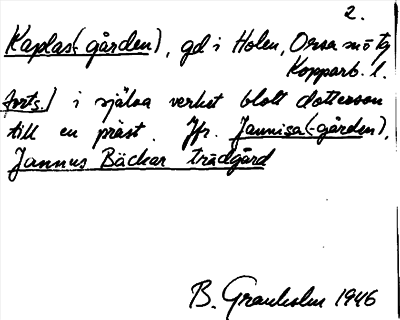 2.
Kaplas(-gården), gd i Holen, Orsa sn ö tg
Kopparb. l.
forts.) i själva verket blott dotterson
till en präst. Jfr. Jannisa(-gården),
Jannus Bäckar trädgård
B. Granholm 1946